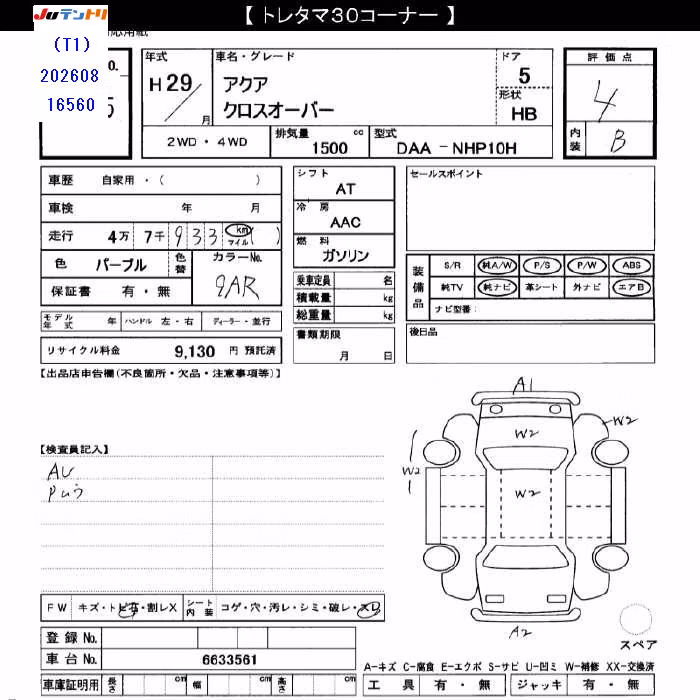 【 トレタマ30コーナー 】
JUテントリ
(T1)
202608
16560
No.
5
年式 H 29 / 月
車名・グレード
アクア
クロスオーバー
ドア 5
形状 HB
評価点 4
内装 B
2WD・4WD 排気量 1500 cc 型式 DAA - NHP10H
車歴 自家用・( )
車検 年 月
走行 4万 7千 9 3 3 km マイル ( )
色 パープル 色替 カラーNo. 9AR
保証書 有・無
モデル年式 年 ハンドル 左・右 ディーラー・並行
リサイクル料金 9,130 円 預託済
シフト AT
冷房 AAC
燃料 ガソリン
乗車定員 名
積載量 kg
総重量 kg
書類期限
月 日
セールスポイント
装備品 S/R 純A/W P/S P/W ABS
純TV 純ナビ 革シート 外ナビ エアB
ナビ型番:
後日品
【出品店申告欄(不良箇所・欠品・注意事項等)】
【検査員記入】
A1
W2
W2
W2
W2
A2
スペア
FW キズ・トビ石・割レX シート内装 コゲ・穴・汚レ・シミ・破レ・スレ
登録 No.
車台 No. 6633561
車庫証明用 長さ cm 幅 cm 高さ cm
A-キズ C-腐食 E-エクボ S-サビ U-凹ミ W-補修 XX-交換済
工具 有・無 ジャッキ 有・無